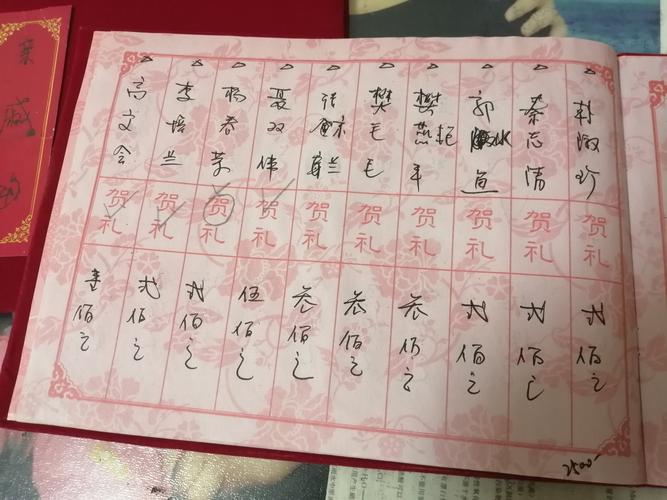 淑珍 贺礼 弍佰元
蔡志清 贺礼 弍佰元
郭 道 贺礼 弍佰元
樊燕 贺礼 叁佰元
樊毛毛 贺礼 叁佰元
张 兰 贺礼 叁佰元
聂双伟 贺礼 伍佰元
杨春荣 贺礼 弍佰元
李培兰 贺礼 弍佰元
高文会 贺礼 壹佰元
2500-
亲戚